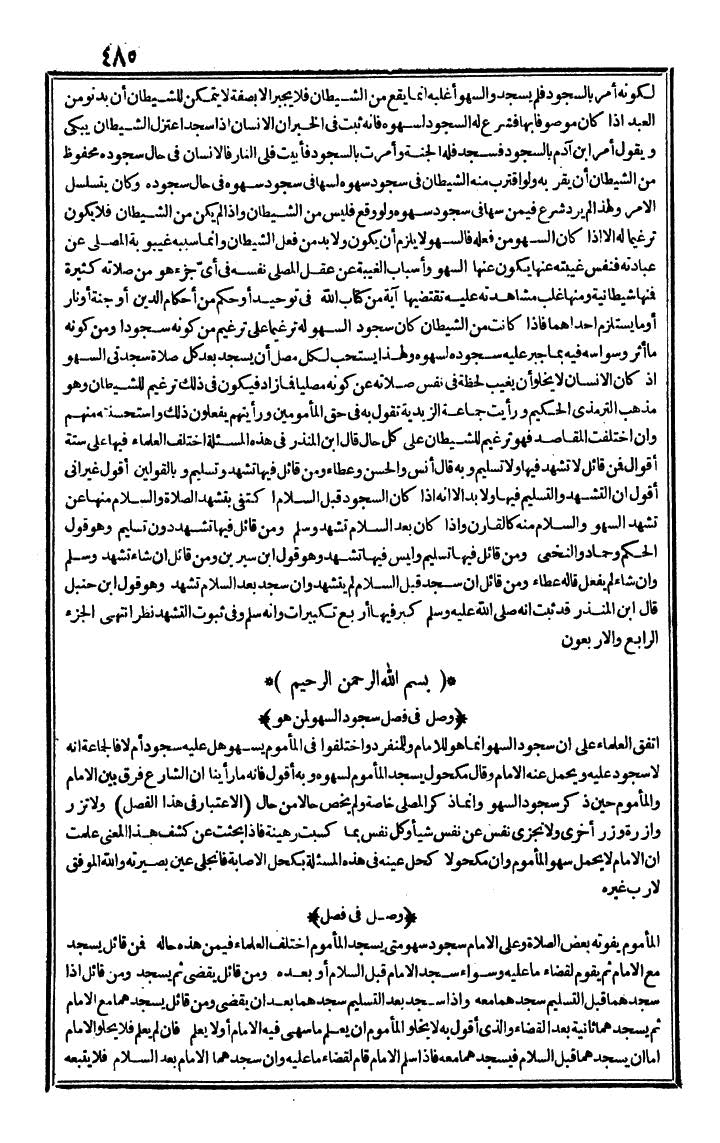 ٤٨٥
لكونه أمر بالسجود فلم يسجد والسهو أغلبه انما يقع من الشيطان فلا يجبر الا بصفة لا يتمكن للشيطان أن يدنو من
العبد اذا كان موصوفا بها فشرع له السجود لسهوه فانه ثبت فى الخبر ان الانسان اذا سجد اعتزل الشيطان يبكى
و يقول أمر ابن آدم بالسجود فسجد فله الجنة وأمرت بالسجود فأبيت فلى النار فالانسان فى حال سجوده محفوظ
من الشيطان أن يقر به ولو اقترب منه الشيطان فى سجود سهوه لسها فى سجود سهوه فى حال سجوده وكان يتسلسل
الامر ولهذا لم يرد شرع فيمن سها فى سجود سهوه ولو وقع فليس من الشيطان واذا لم يكن من الشيطان فلا يكون
ترغيما له الا اذا كان السهو من فعله فالسهو لا يلزم أن يكون ولا بد من فعل الشيطان وانما سببه غيبوبة المصلى عن
عبادته فنفس غيبته عنها يكون عنها السهو وأسباب الغيبة عن عقل المصلى نفسه فى أىّ جزء هو من صلاته كثيرة
فنها شيطانية ومنها غلب مشاهدته عليه تقتضيها آية من كتاب الله فى توحيد أو حكم من أحكام الدين أو جنة أو نار
أو ما يستلزم احداهما فاذا كانت من الشيطان كان سجود السهو له ترغيما على ترغيم من كونه سجودا ومن كونه
ما أثر وسواسه فيه بما جبر عليه سجوده لسهوه ولهذا يستحب لكل مصل أن يسجد بعد كل صلاة سجدتى السهو
اذ كان الانسان لا يخلو أن يغيب لحظة فى نفس صلاته عن كونه مصليا فما زاد فيكون فى ذلك ترغيم للشيطان وهو
مذهب الترمذى الحكيم ورأيت جماعة الزيدية تقول به فى حق المأمومين ورأيتهم يفعلون ذلك واستحسنته منهم
وان اختلفت المقاصد فهو ترغيم للشيطان على كل حال قال ابن المنذر فى هذه المسئلة اختلف العلماء فيها على ستة
أقوال فن قائل لا تشهد فيها ولا تسليم و به قال أنس والحسن وعطاء ومن قائل فيها تشهد وتسليم و بالقولين أقول غير انى
أقول ان التشهد والتسليم فيها ولا بد الا انه اذا كان السجود قبل السلام اكتفى بتشهد الصلاة والسلام منها عن
تشهد السهو والسلام منه كالقارن واذا كان بعد السلام تشهد وسلم ومن قائل فيها تشهد دون تسليم وهو قول
الحكم وحماد والنخعى ومن قائل فيها تسليم وليس فيها تشهد وهو قول ابن سيرين ومن قائل ان شاء تشهد وسلم
وان شاء لم يفعل قاله عطاء ومن قائل ان سجد قبل السلام لم يتشهد وان سجد بعد السلام تشهد وهو قول ابن حنبل
قال ابن المنذر قد ثبت انه صلى الله عليه وسلم كبر فيها أربع تكبيرات وانه سلم وفى ثبوت التشهد نظر انتهى الجزء
الرابع والاربعون
*( بسم الله الرحمن الرحيم )*
﴿وصل فى فصل سجود السهو لمن هو﴾
اتفق العلماء على ان سجود السهو انما هو للامام وللمنفرد واختلفوا فى المأموم يسهو هل عليه سجود أم لا فالجاعة انه
لا سجود عليه ويحمل عنه الامام وقال مكحول يسجد المأموم لسهوه و به أقول فانه ما رأينا ان الشارع فرق بين الامام
والمأموم حين ذكر سجود السهو وانما ذكر المصلى خاصة ولم يخص حالا من حال (الاعتبار فى هذا الفصل) ولا تزر
وازرة وزر أخرى ولا تجزى نفس عن نفس شيأ وكل نفس بما كسبت رهينة فاذا بحثت عن كشف هذا المعنى علمت
ان الامام لا يحمل سهو المأموم وان مكحولا كحل عينه فى هذه المسئلة بكحل الاصابة فانجلى عين بصيرته والله الموفق
لا رب غيره
﴿وصل فى فصل﴾
المأموم يفوته بعض الصلاة وعلى الامام سجود سهو متى يسجد المأموم اختلف العلماء فيمن هذه حاله فن قائل يسجد
مع الامام ثم يقوم لقضاء ما عليه وسواء سجد الامام قبل السلام أو بعده ومن قائل يقضى ثم يسجد ومن قائل اذا
سجدهما قبل التسليم سجدهما معه واذا سجد بعد التسليم سجدهما بعد ان يقضى ومن قائل يسجدهما مع الامام
ثم يسجدهما ثانية بعد القضاء والذى أقول به لا يخلو المأموم ان يعلم ما سهى فيه الامام أو لا يعلم فان لم يعلم فلا يخلو الامام
اما ان يسجدهما قبل السلام فيسجدهما معه فاذا سلم الامام قام لقضاء ما عليه وان سجدهما الامام بعد السلام فلا يتبعه